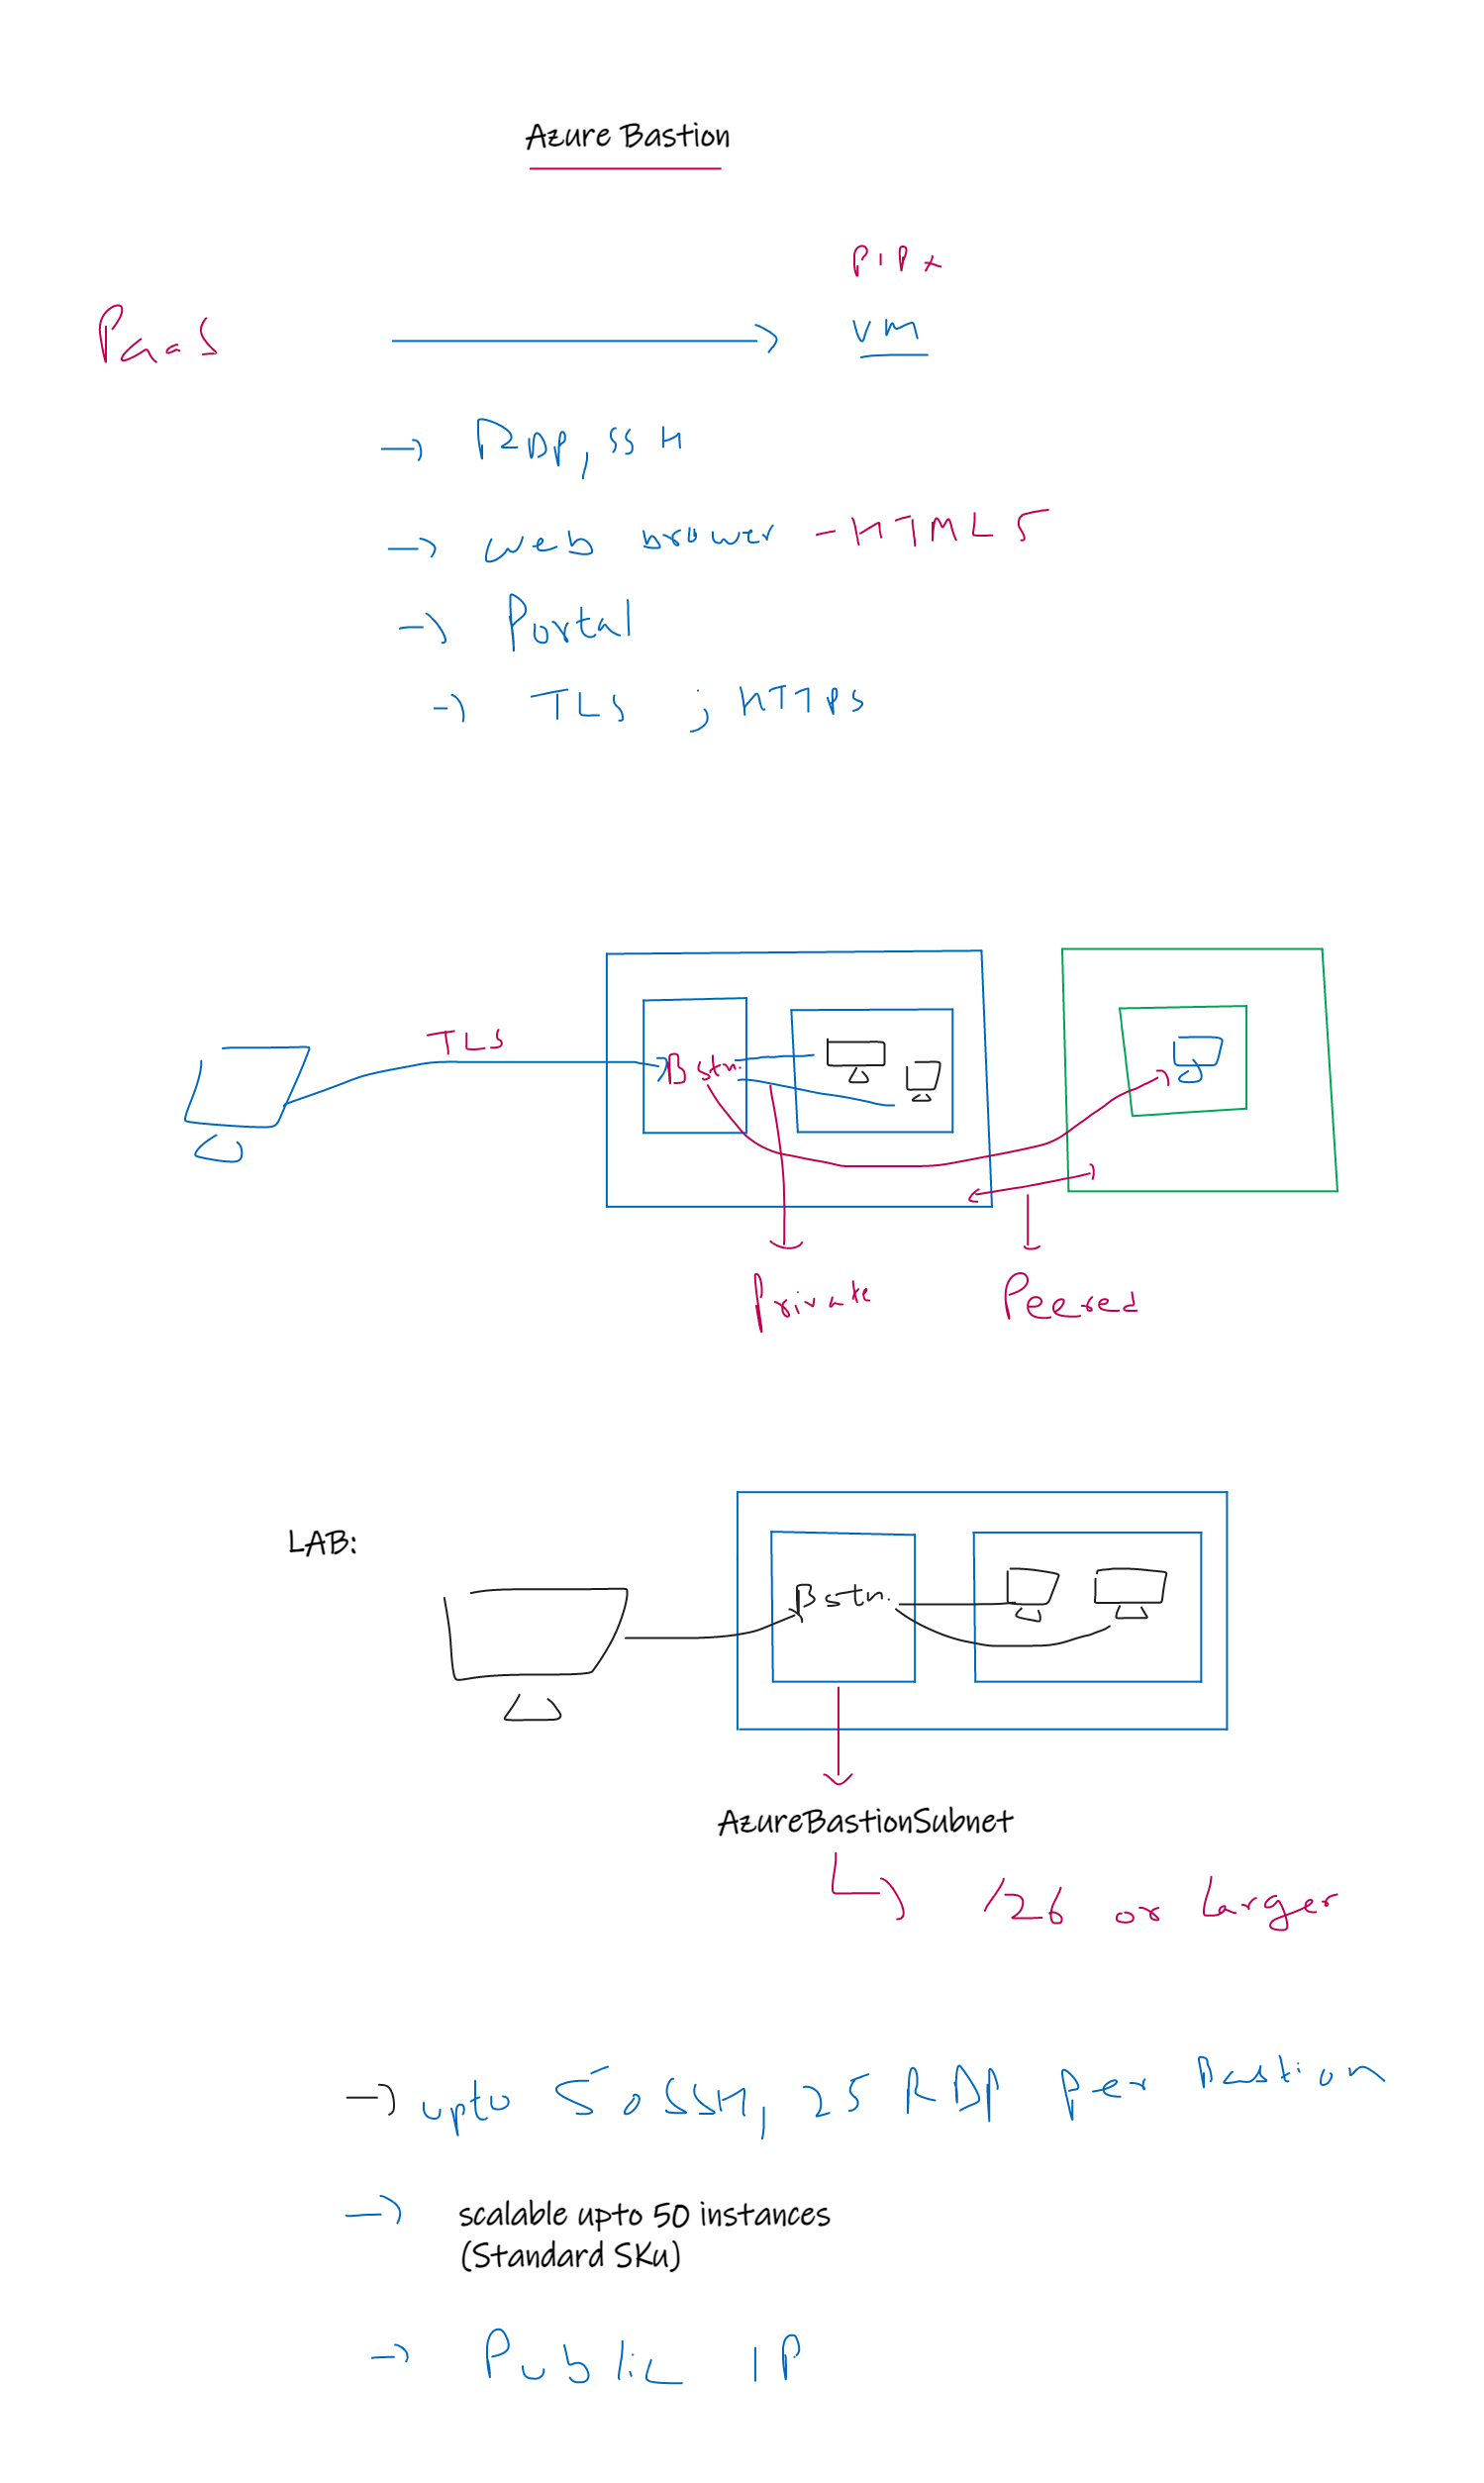 Azure Bastion
PIP x
PaaS → VM
→ RDP, SSH
→ web brower - HTML 5
→ Portal
→ TLS ; HTTPS
TLS
Bstn.
Private
Peered
LAB:
Bstn.
AzureBastionSubnet
/26 or larger
→ upto 50 SSH, 25 RDP per Bastion
→ scalable upto 50 instances
(Standard SKu)
→ Public IP